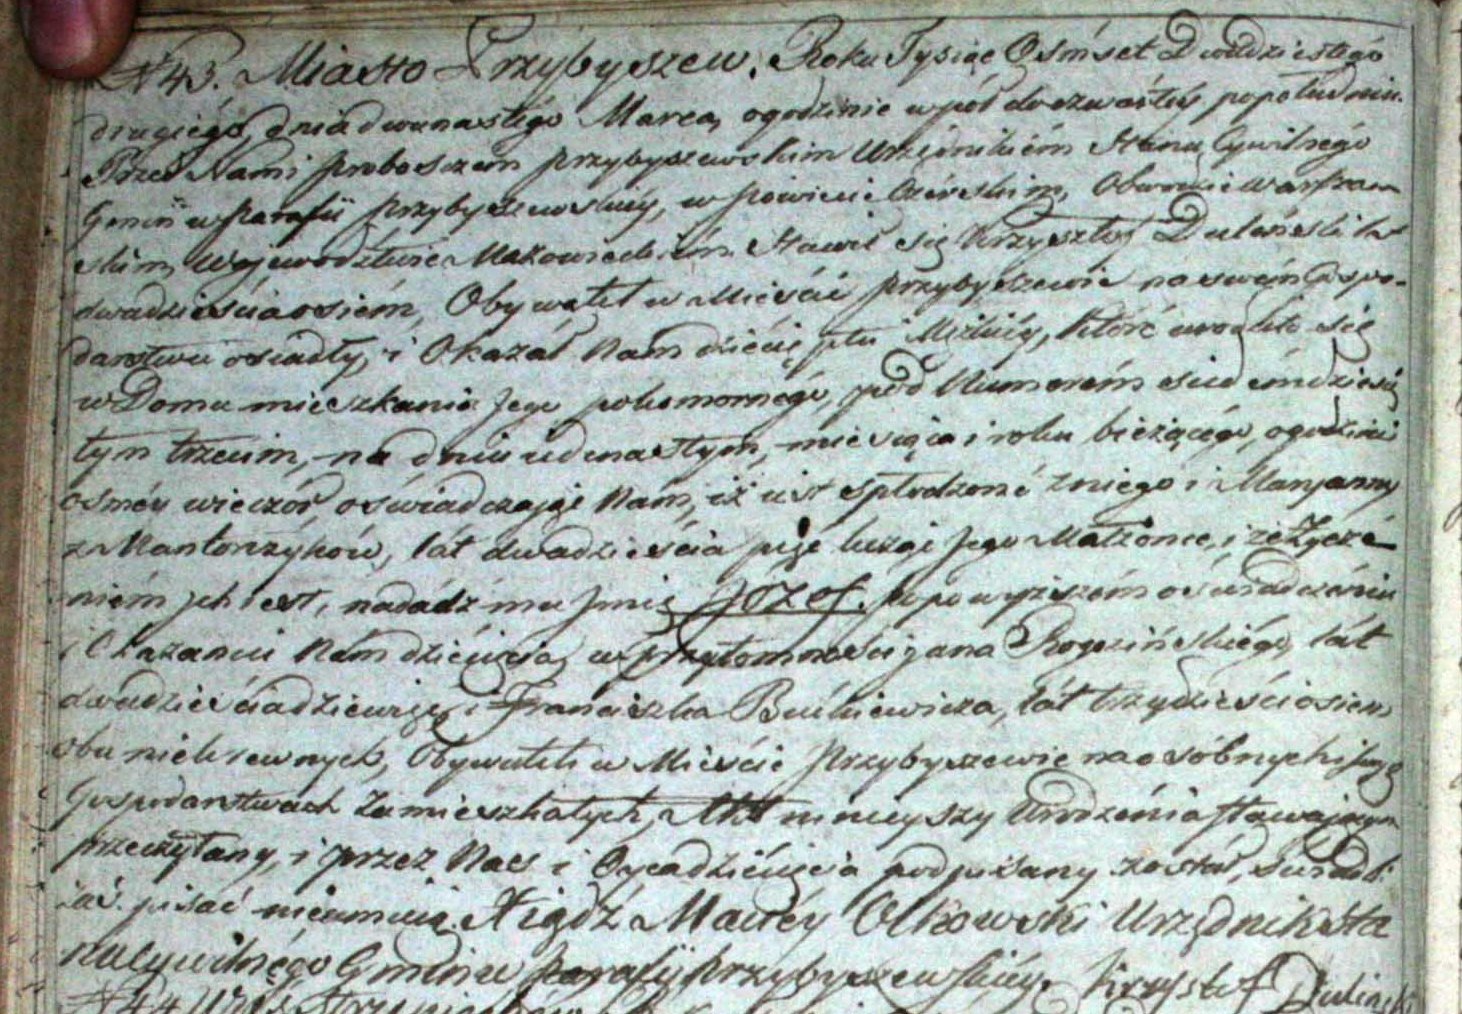 N 43. Miasto Przybyszew. Roku Tysiąc Osmset Dwudziestégo
drugiégo, dnia dwunastégo Marca, ogodzinie wpół do czwartéy popołudniu.
Przed Nami proboszczem przybyszewskim Urzędnikiém Stanu Cywilnégo
Gminy w parafii przybyszewskiéy, w powiecie Czérskim, Obwodzie Warszaw
skim, Województwie Mazowieckiem Stawił się Krzysztof Duliński lat
dwadzieścia osiém, Obywatel w Mieście przybyszewie na swém Gospo-
darstwie osiadły, i Okazał Nam dziécię płci Męzkiéy, któré urodziło się
w Domu mieszkania Jego pod Numerém siedémdziesią
tym trzecim, na dniu jedenastym, miesiąca i roku bieżącégo, ogodzinie
osméy wieczór, oświadczając Nam, iż jest spłodzoné zniégo i Maryanny
z lat dwadzieścia pięć liczącéj Jego Małżonce, i że życzé-
niém jch iest, nadadź mu jmię Jozef. Po powyższém oświadczéniu
i Okazaniu Nam dziécięcia, w przytomności jana Rogozińskiégo, lát
dwadzieścia dziewięć, i Franciszka lát trzydzieści osiem
obu niekrewnych, Obywateli w Mieście Przybyszewie na osóbnych
Gospodarstwach Zamieszkałych, Akt ninieyszy Urodzénia stawającym
przeczytany, i przez Nas i Oyca dziécięcia podpisany został, Swiadko
iaś. pisać nieumieią. Xiądz Maciéy Olkowski Urzędnik Sta
nu Cywilnégo Gminie parafii przybyszewskiéy. Krzysztof Duliński
N 44